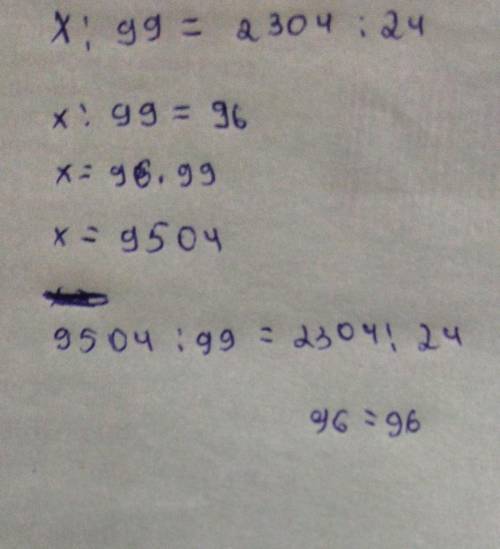 X : 99 = 2304 : 24
x : 99 = 96
x = 96 . 99
x = 9504
9504 : 99 = 2304 : 24
96 = 96